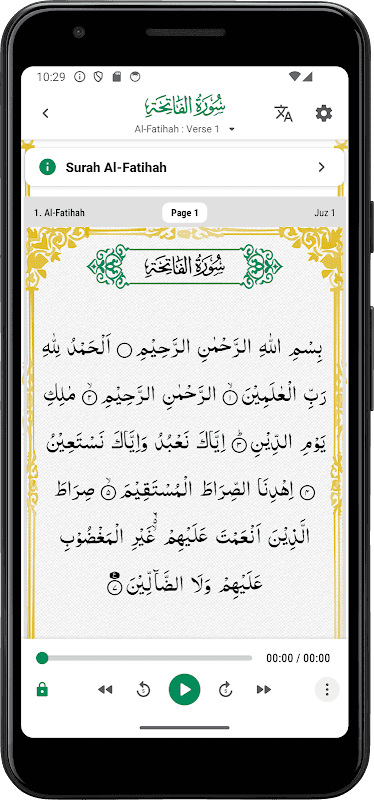 10:29
سُورَةُ الْفَاتِحَةِ
Al-Fatihah : Verse 1
Surah Al-Fatihah
1. Al-Fatihah Page 1 Juz 1
سُورَةُ الْفَاتِحَةِ
بِسْمِ اللّٰهِ الرَّحْمٰنِ الرَّحِيْمِ ۝ اَلْحَمْدُ لِلّٰهِ
رَبِّ الْعٰلَمِيْنَ ۝۱ۙ الرَّحْمٰنِ الرَّحِيْمِ ۝۲ۙ مٰلِكِ
يَوْمِ الدِّيْنِ ۝۳ؕ اِيَّاكَ نَعْبُدُ وَاِيَّاكَ نَسْتَعِيْنُ
۝۴ؕ اِهْدِنَا الصِّرَاطَ الْمُسْتَقِيْمَ ۝۵ۙ صِرَاطَ
الَّذِيْنَ اَنْعَمْتَ عَلَيْهِمْ ۙ۬ غَيْرِ الْمَغْضُوْبِ
عَلَيْهِمْ وَلَا الضَّآلِّيْنَ ۝۷
00:00 / 00:00
5 5